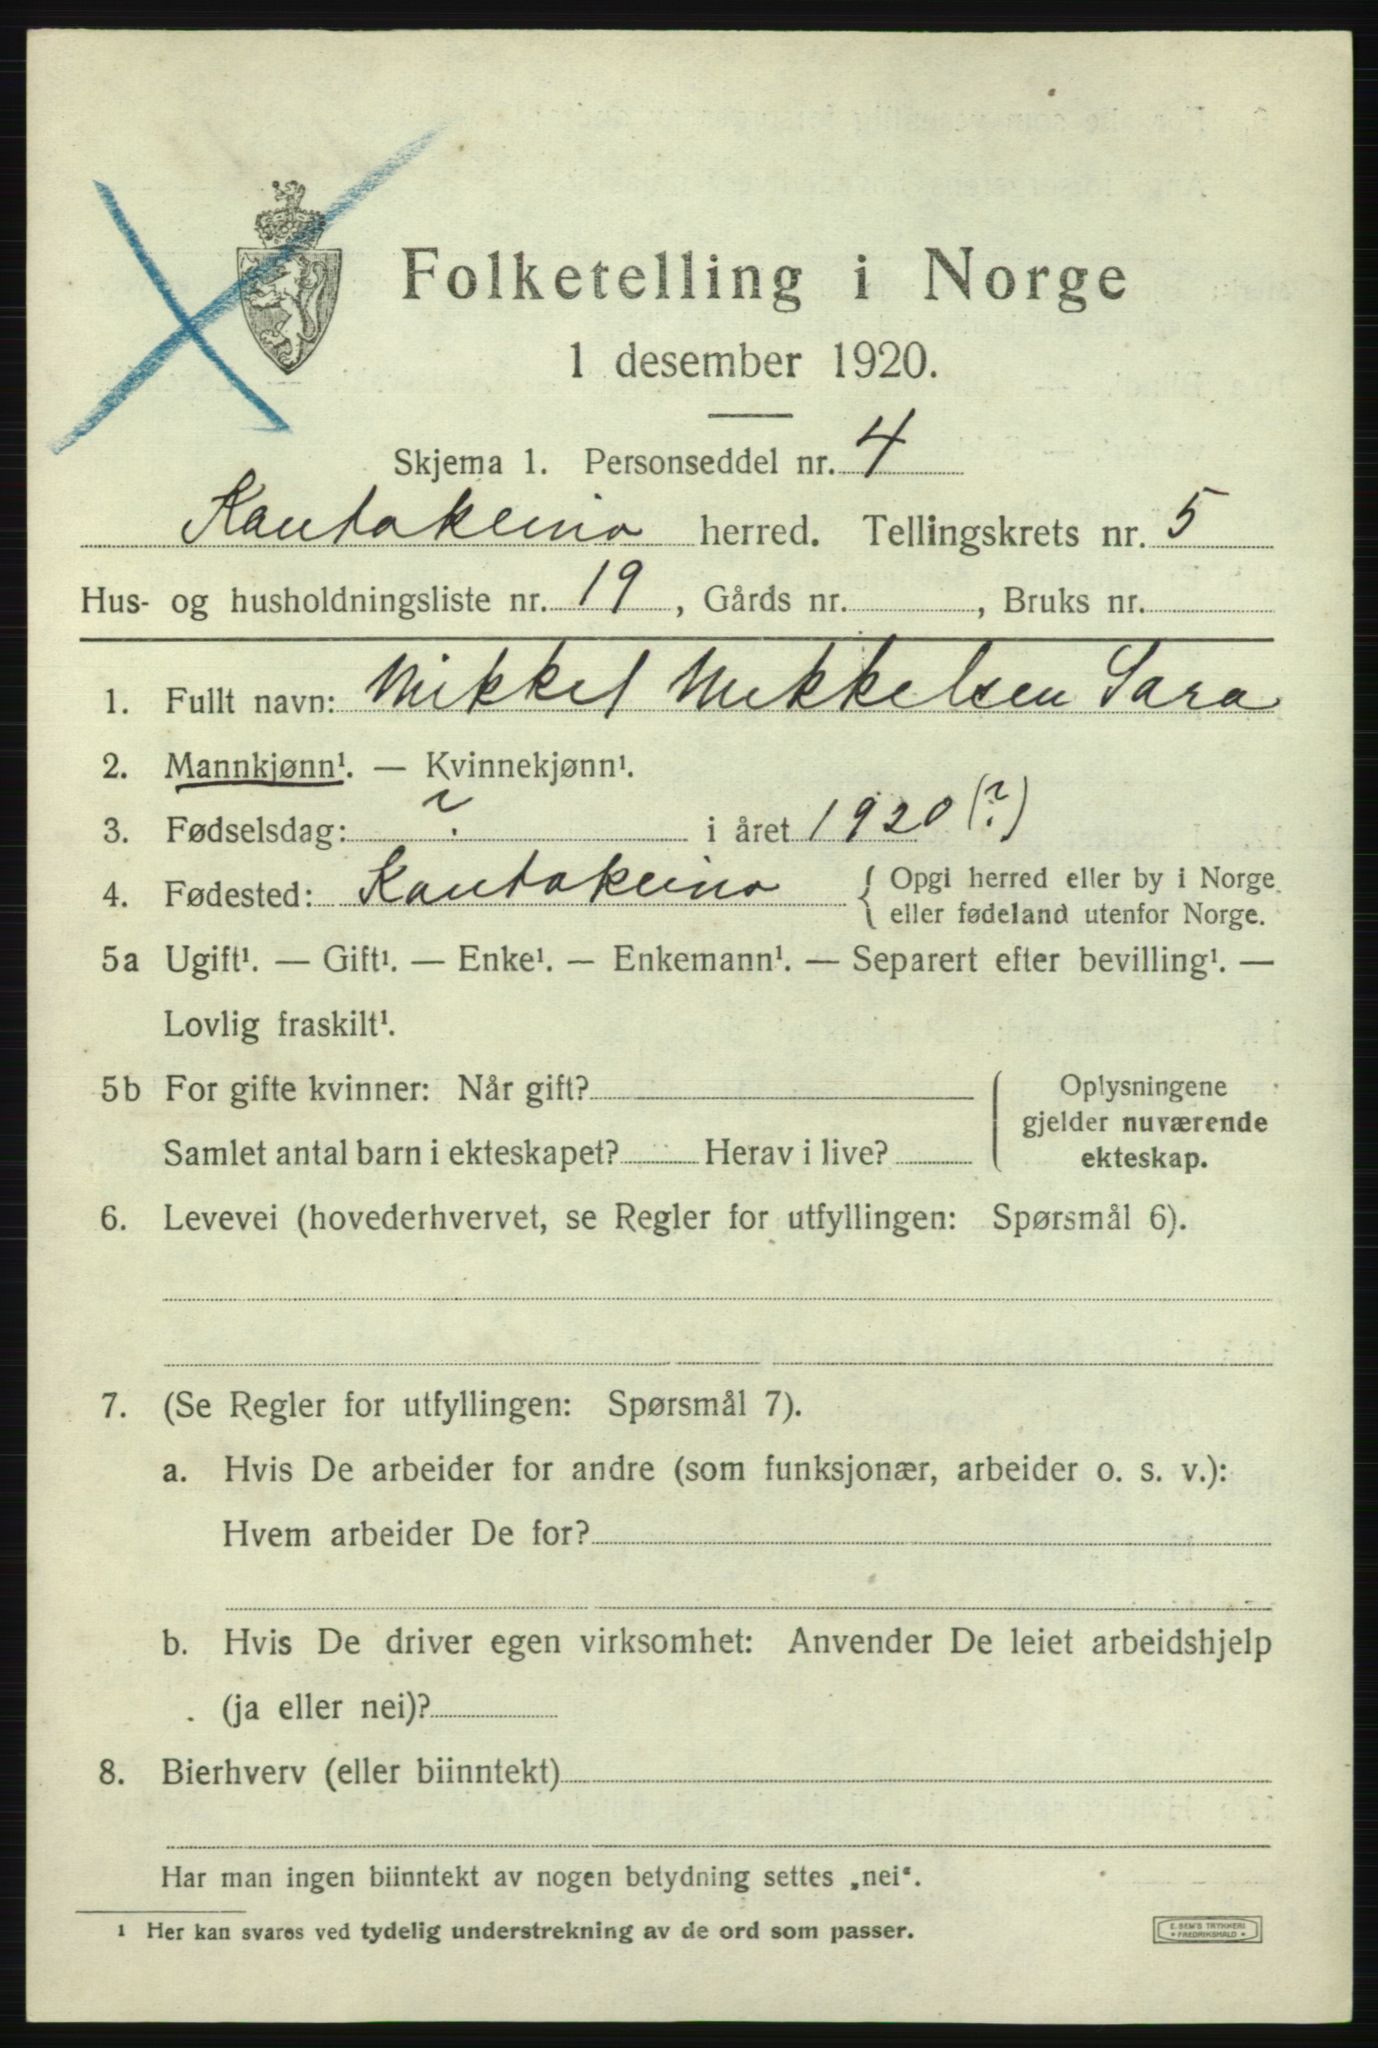 Folketelling i Norge
1 desember 1920.
Skjema 1. Personseddel nr. 4
Kautokeino herred. Tellingskrets nr. 5
Hus- og husholdningsliste nr. 19, Gårds nr. , Bruks nr.
1. Fullt navn: Mikkel Mikkelsen Sara
2. Mannkjønn¹. — Kvinnekjønn¹.
3. Fødselsdag: ? i året 1920 (?)
4. Fødested: Kautokeino { Opgi herred eller by i Norge
eller fødeland utenfor Norge.
5a Ugift¹. — Gift¹. — Enke¹. — Enkemann¹. — Separert efter bevilling¹. —
Lovlig fraskilt¹.
5b For gifte kvinner: Når gift?
Samlet antal barn i ekteskapet? Herav i live?
Oplysningene
gjelder nuværende
ekteskap.
6. Levevei (hovederhvervet, se Regler for utfyllingen: Spørsmål 6).
7. (Se Regler for utfyllingen: Spørsmål 7).
a. Hvis De arbeider for andre (som funksjonær, arbeider o. s. v.):
Hvem arbeider De for?
b. Hvis De driver egen virksomhet: Anvender De leiet arbeidshjelp
(ja eller nei)?
8. Bierhverv (eller biinntekt)
Har man ingen biinntekt av nogen betydning settes „nei“.
¹ Her kan svares ved tydelig understrekning av de ord som passer.
E. SEM'S TRYKKERI
* FREDRIKSHALD *